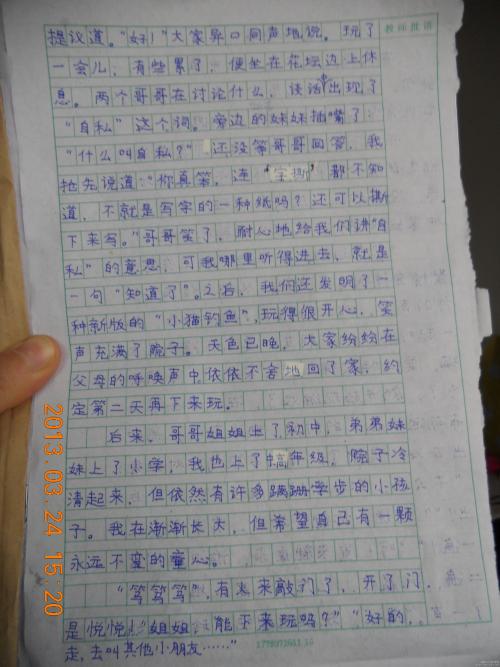 提议道。“好！”大家异口同声地说。玩了
教师批语
一会儿，有些累了，便坐在花坛边上休
息。两个哥哥在讨论什么，谈话中出现了
“自私”这个词。旁边的妹妹插嘴了：
“什么叫自私？”还没等哥哥回答，我
抢先说道：“你真笨，连“字撕”都不知
道，不就是写字的一种纸吗？还可以撕
下来写。”哥哥笑了，耐心地给我们讲“自
私”的意思，可我哪里听得进去，就是
一句“知道了”。之后，我们还发明了一
种新版的“小猫钓鱼”，玩得很开心，笑
声充满了院子。天色已晚，大家纷纷在
父母的呼唤声中依依不舍地回了家，约
定第二天再下来玩。
后来，哥哥姐姐上了初中，弟弟妹
妹上了小学，我也上了高年级，院子冷
清起来，但依然有许多蹒跚学步的小孩
子。我在渐渐长大，但希望自己有一颗
永远不变的童心。
“笃笃笃”，有人来敲门了，开了门，
是悦悦！“姐姐，能下来玩吗？”“好的，
走，去叫其他小朋友……”
2013.03.24 15:20